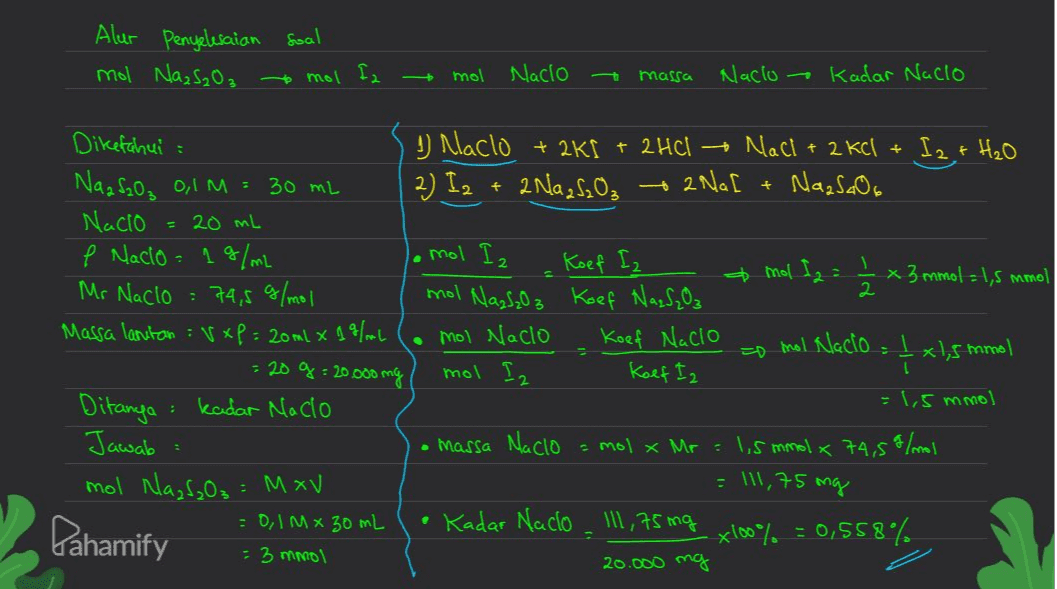 Alur Penyelesaian Soal
mol Na₂S₂O₃ → mol I₂ → mol NaClO → massa NaClO → Kadar NaClO
Diketahui :
Na₂S₂O₃ 0,1 M = 30 mL
NaClO = 20 mL
ρ NaClO = 1 g/mL
Mr NaClO : 74,5 g/mol
Massa larutan : V x ρ = 20 mL x 1 g/mL
= 20 g = 20.000 mg
Ditanya : kadar NaClO
Jawab :
mol Na₂S₂O₃ = M x V
= 0,1 M x 30 mL
= 3 mmol
1) NaClO + 2KI + 2HCl → NaCl + 2KCl + I₂ + H₂O
2) I₂ + 2Na₂S₂O₃ → 2NaI + Na₂S₄O₆
• mol I₂ / mol Na₂S₂O₃ = Koef I₂ / Koef Na₂S₂O₃ ⇒ mol I₂ = 1/2 x 3 mmol = 1,5 mmol
• mol NaClO / mol I₂ = Koef NaClO / Koef I₂ ⇒ mol NaClO = 1/1 x 1,5 mmol
= 1,5 mmol
• massa NaClO = mol x Mr = 1,5 mmol x 74,5 g/mol
= 111,75 mg
• Kadar NaClO = 111,75 mg / 20.000 mg x 100% = 0,558%
Pahamify